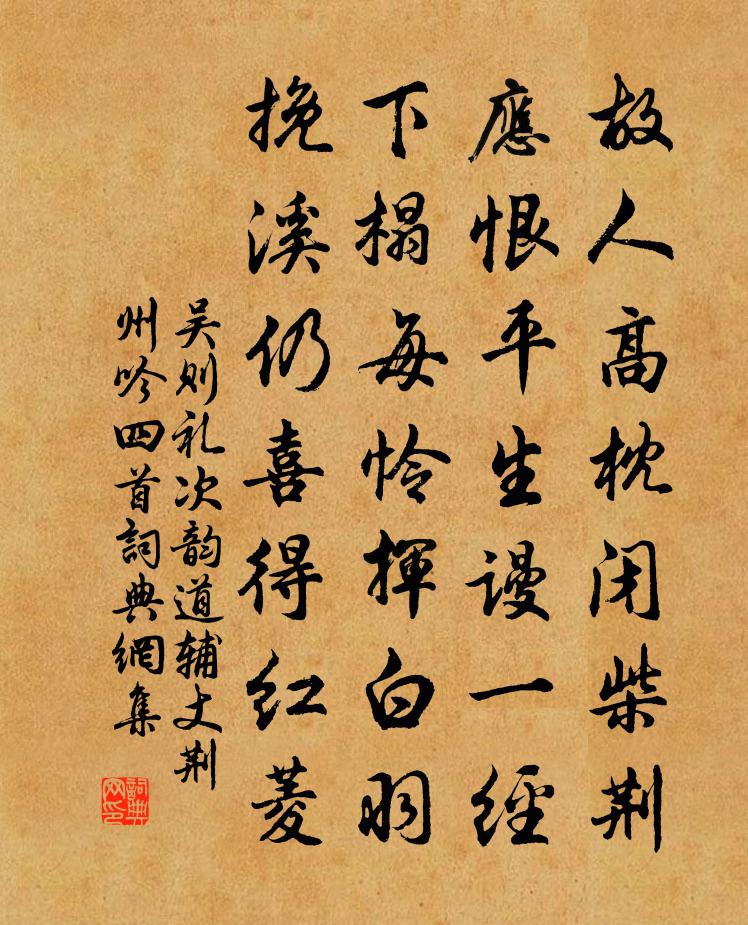 故人高枕闭柴荆
應恨平生謾一經
下榻每怜揮白羽
挽溪仍喜得红菱
吴则礼次韵道辅丈荆
州吟四首詞典網集
詞典
网印